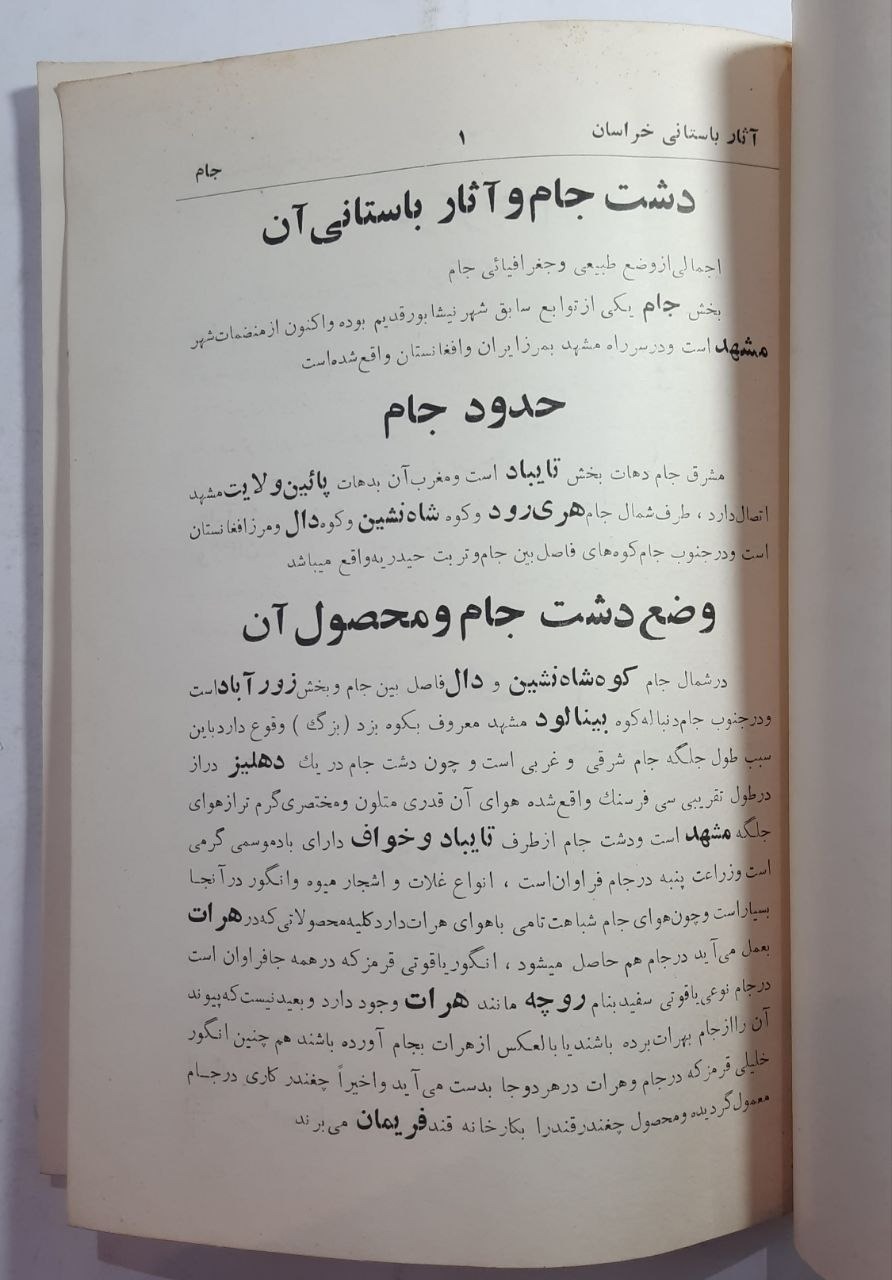 آثار باستانی خراسان
۱
جام
دشت جام و آثار باستانی آن
اجمالی از وضع طبیعی و جغرافیائی جام
بخش جام یکی از توابع سابق شهر نیشابور قدیم بوده واکنون از منضمات شهر
مشهد است ودرسر راه مشهد بمرز ایران وافغانستان واقع شده است
حدود جام
مشرق جام دهات بخش تایباد است ومغرب آن بدهات پائین ولایت مشهد
اتصال دارد ، طرف شمال جام هری رود وکوه شاه نشین وکوه دال ومرز افغانستان
است ودرجنوب جام کوه‌های فاصل بین جام وتربت حیدریه واقع میباشد
وضع دشت جام ومحصول آن
درشمال جام کوه شاه نشین و دال فاصل بین جام وبخش زور آباد است
ودرجنوب جام دنباله کوه بینالود مشهد معروف بکوه بزد (بزگ) وقوع دارد باین
سبب طول جلگه جام شرقی و غربی است و چون دشت جام در یك دهلیز دراز
درطول تقریبی سی فرسنك واقع شده هوای آن قدری متلون ومختصری گرم تر از هوای
جلگه مشهد است ودشت جام ازطرف تایباد و خواف دارای باد موسمی گرمی
است وزراعت پنبه درجام فراوان است ، انواع غلات و اشجار میوه وانگور درآنجا
بسیار است وچون هوای جام شباهت تامی باهوای هرات دارد کلیه محصولاتی که در هرات
بعمل می‌آید درجام هم حاصل میشود ، انگور یاقوتی قرمز که درهمه جافراوان است
درجام نوعی یاقوتی سفید بنام روچه مانند هرات وجود دارد و بعید نیست که پیوند
آن را از جام بهرات برده باشند یا بالعکس از هرات بجام آورده باشند هم چنین انگور
خلیلی قرمز که درجام وهرات درهر دوجا بدست می‌آید واخیراً چغندر کاری درجام
معمول گردیده ومحصول چغندر قند را بکارخانه قند فریمان می‌برند